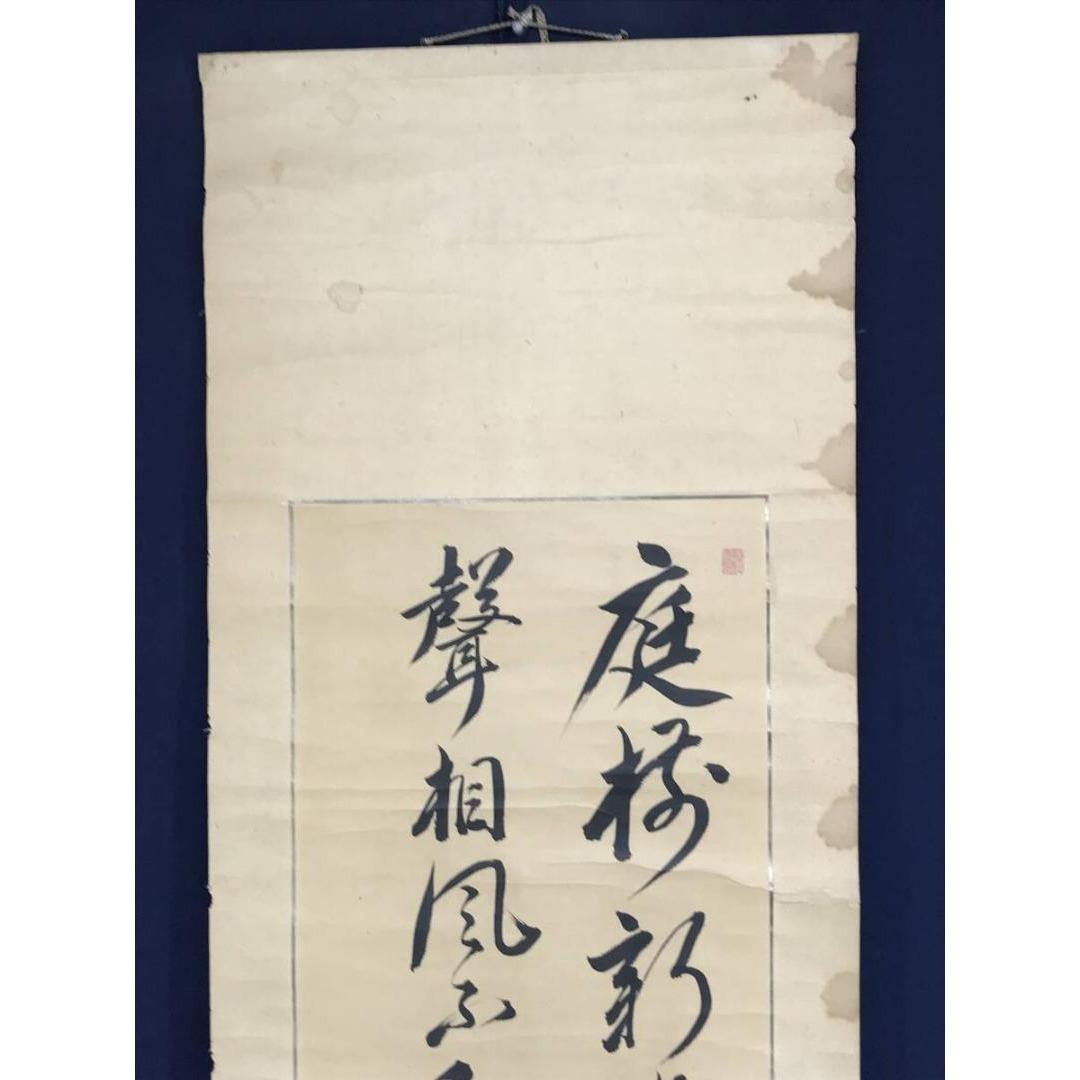 庭樹新
聲相風不